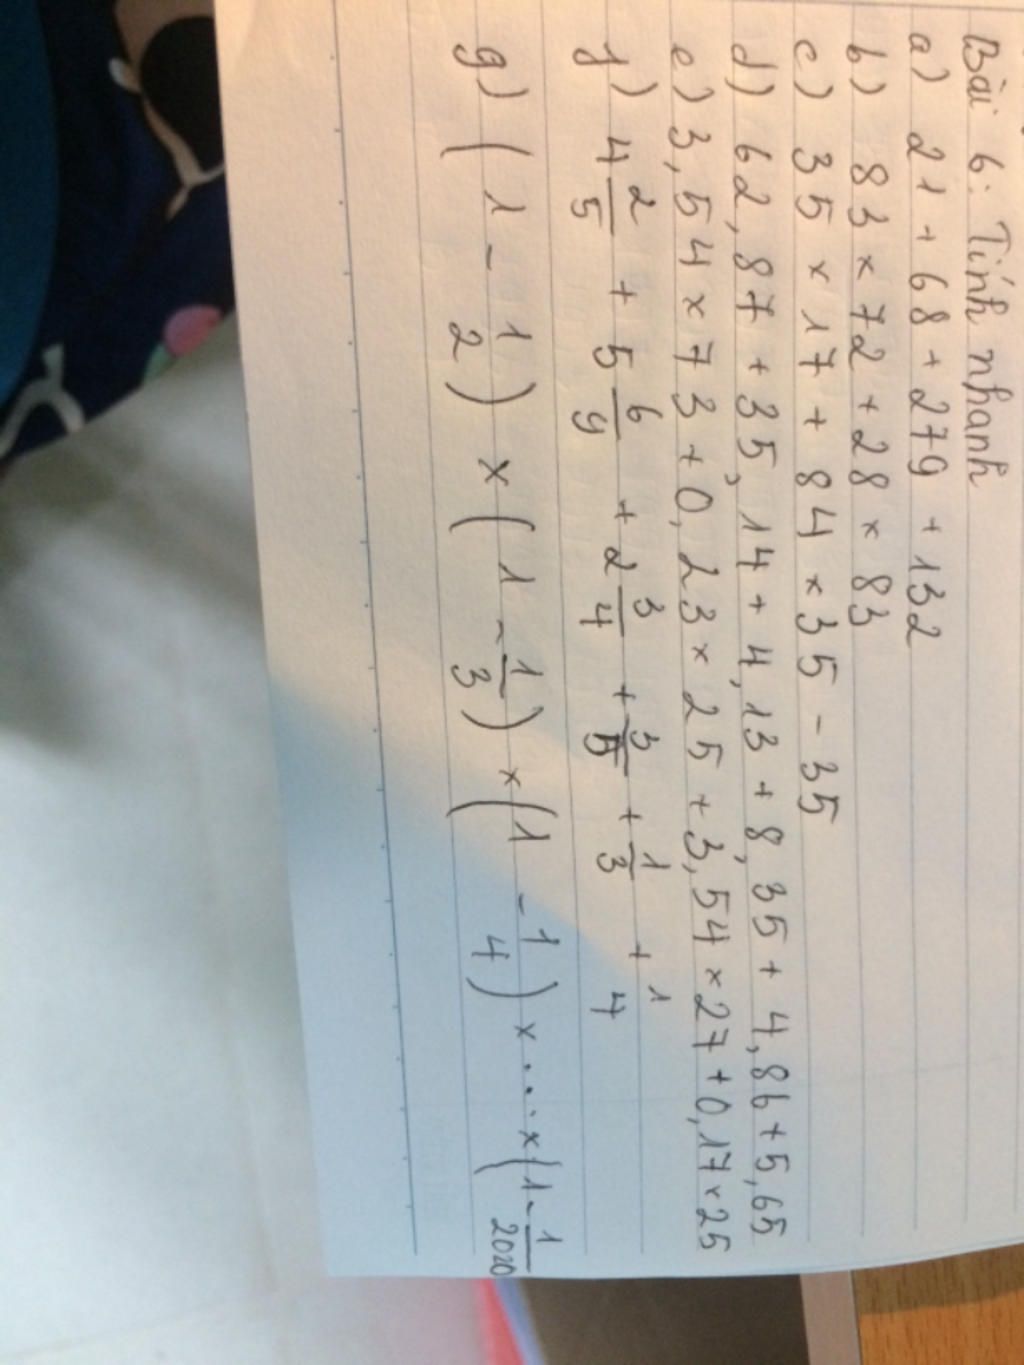 Bài 6: Tính nhanh
a) 21 + 68 + 279 + 132
b) 83 × 72 + 28 × 83
c) 35 × 17 + 84 × 35 - 35
d) 62,87 + 35,14 + 4,13 + 8,35 + 4,86 + 5,65
e) 3,54 × 73 + 0,23 × 25 + 3,54 × 27 + 0,17 × 25
f) 4 2/5 + 5 6/9 + 2 3/4 + 3/5 + 1/3 + 1/4
g) (1 - 1/2) × (1 - 1/3) × (1 - 1/4) × ... × (1 - 1/2020)